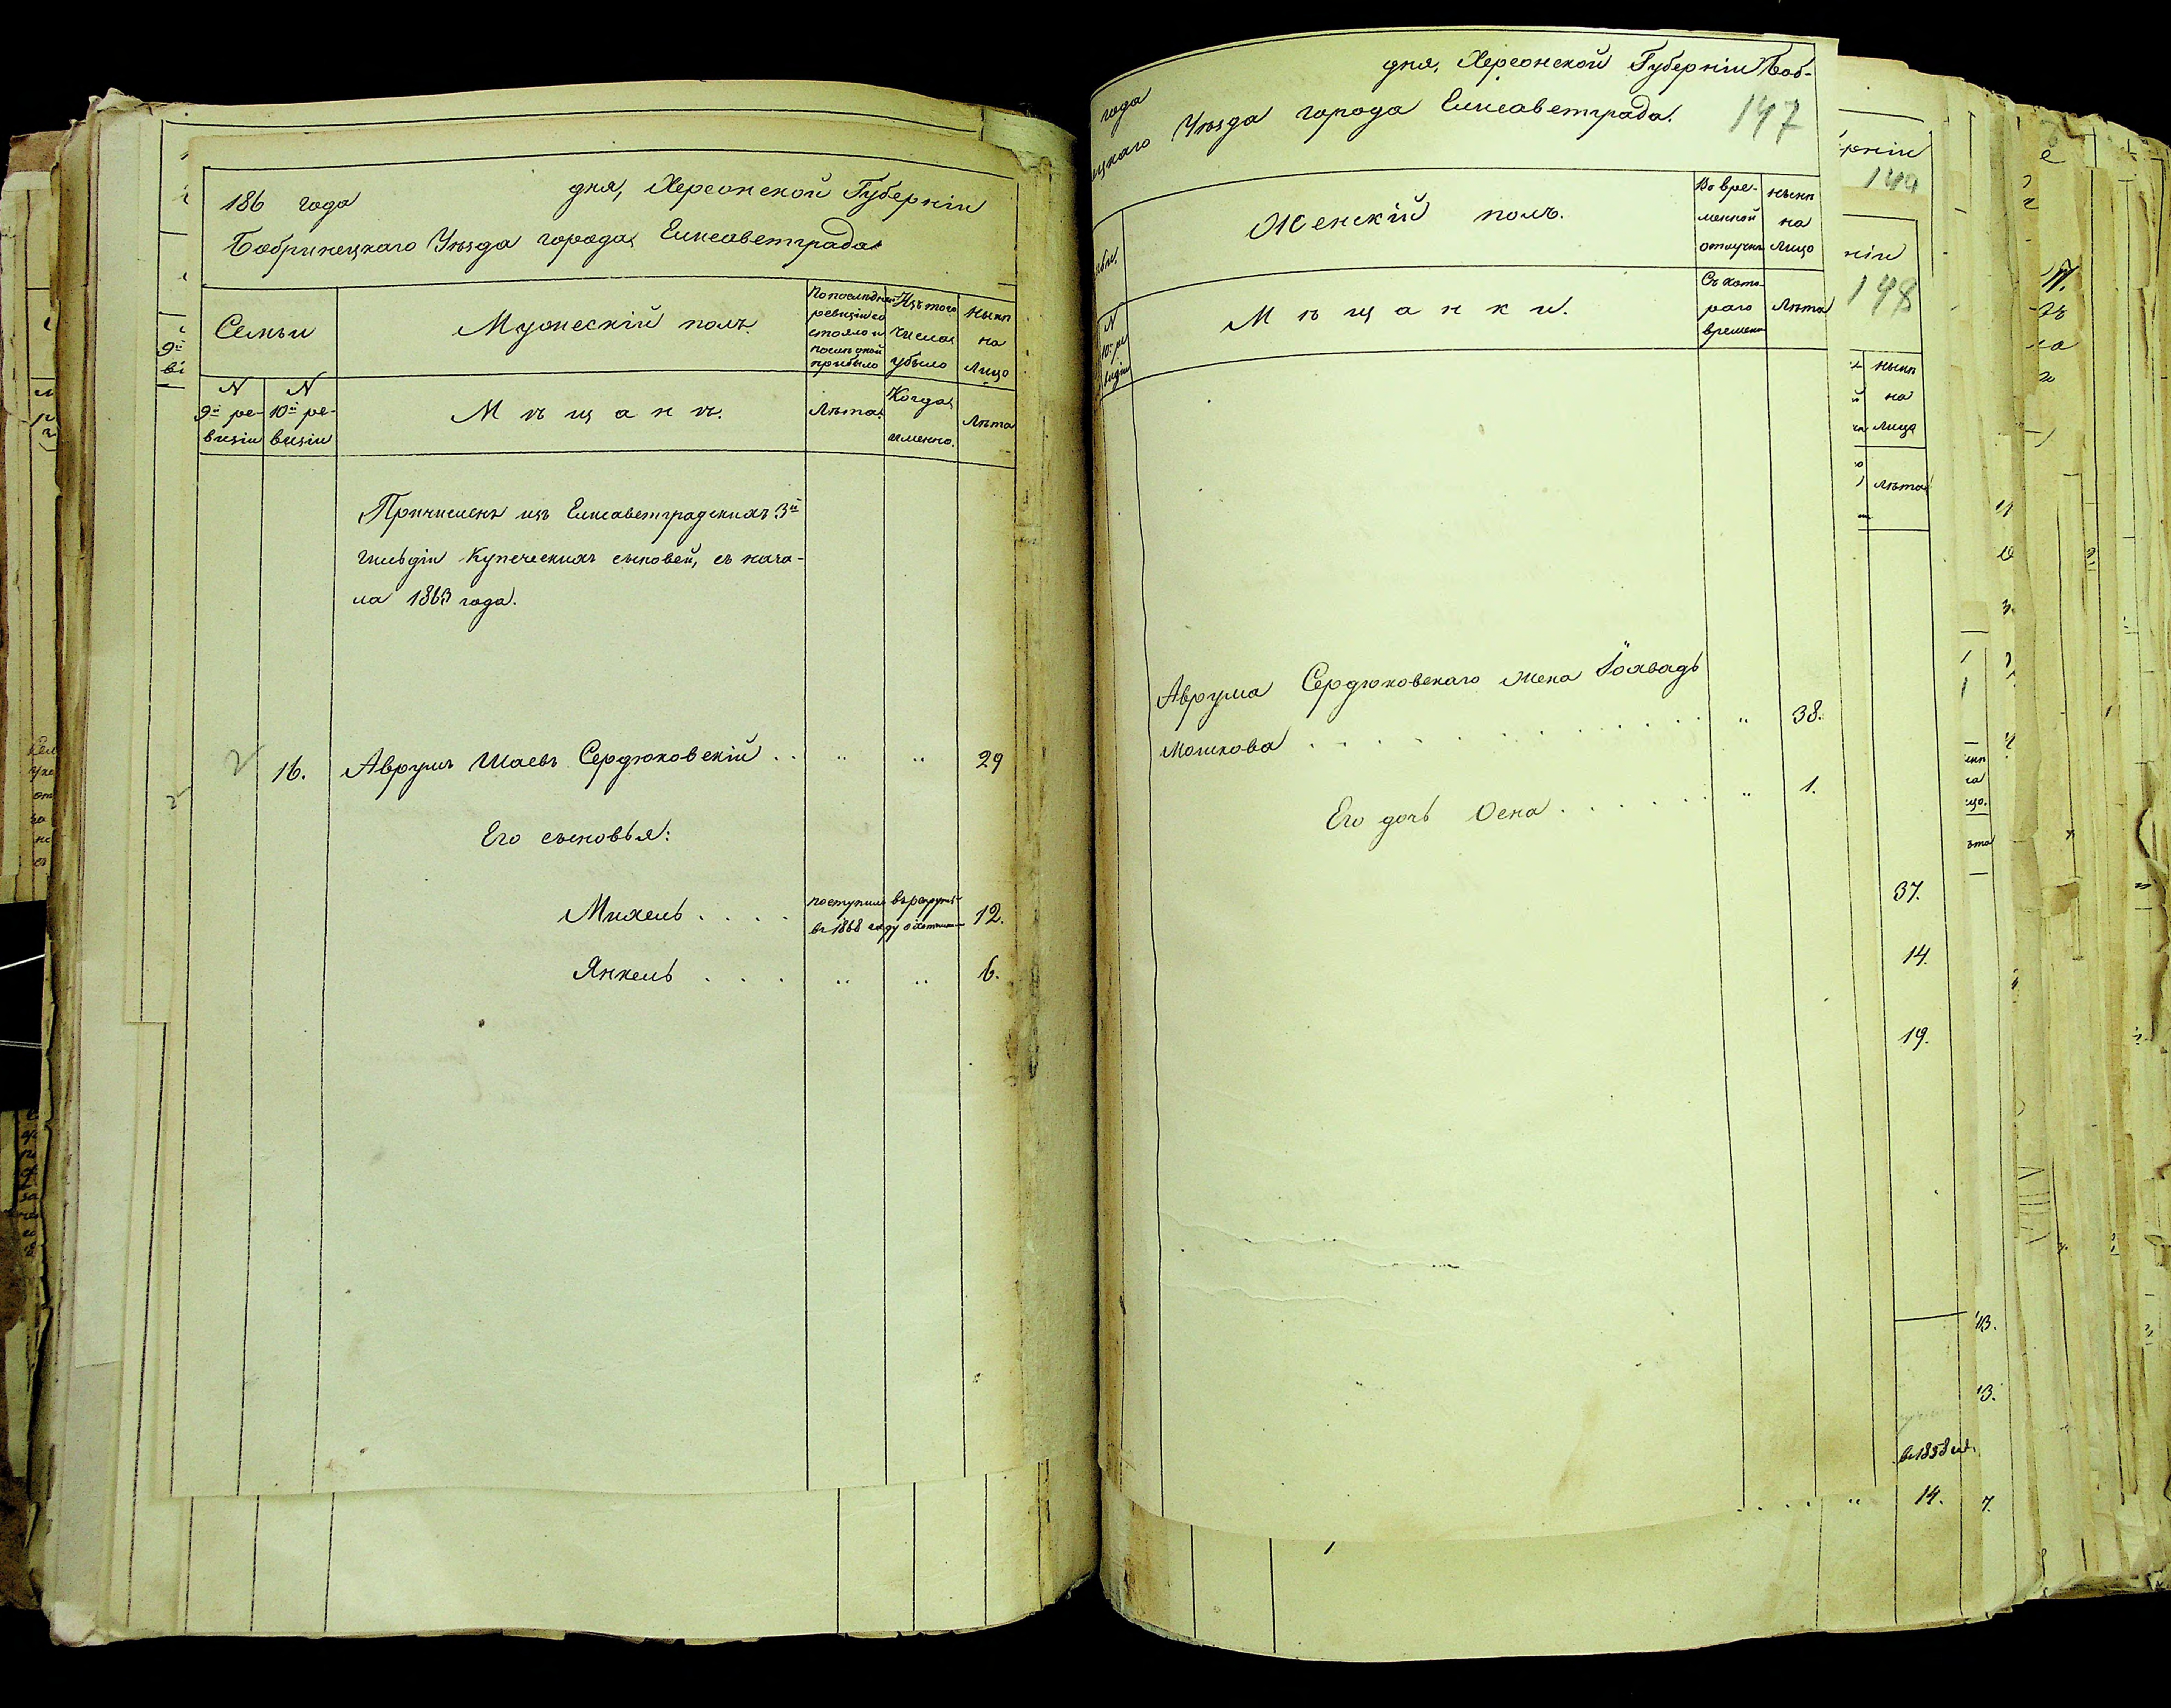 186 года дня, Херсонской Губернiи
Бобринецкаго Уѣзда города Елисаветграда
Семьи
Мужескiй полъ.
По послѣдней ревизiи состояло и послѣ оной прибыло
Изъ того числа убыло
Нынѣ на лицо
N 9й ревизiи
N 10й ревизiи
Мѣщанъ.
Лѣта.
Когда именно.
Лѣта
Причисленъ изъ Елисаветградскихъ 3й
гильдiи Купеческихъ сыновей, съ нача-
ла 1863 года.
16. Аврумъ Шаевъ Сердюковскiй . . „ „ 29
Его сыновья:
Михель . . . . поступилъ въ рекруты 12.
въ 1868 году
Янкель . . . „ „ 6.
года дня, Херсонской Губернiи Боб-
ецкаго Уѣзда города Елисаветграда.
147
Женскiй полъ.
Во вре-
менной
отлучкѣ
Нынѣ
на
Лицо
N
10й ре
визiи
Мѣщанки.
Съ кото-
раго
времени
Лѣта
Аврума Сердюковскаго жена Iохвадь
Мошкова . . . . . . . . . . . „ 38.
Его дочь Осна . . . . . . „ 1.
рнiи
144
нiи
148
Нынѣ
на
Лицо
Лѣта
37.
14.
19.
13.
13.
въ 1858
14.
7.